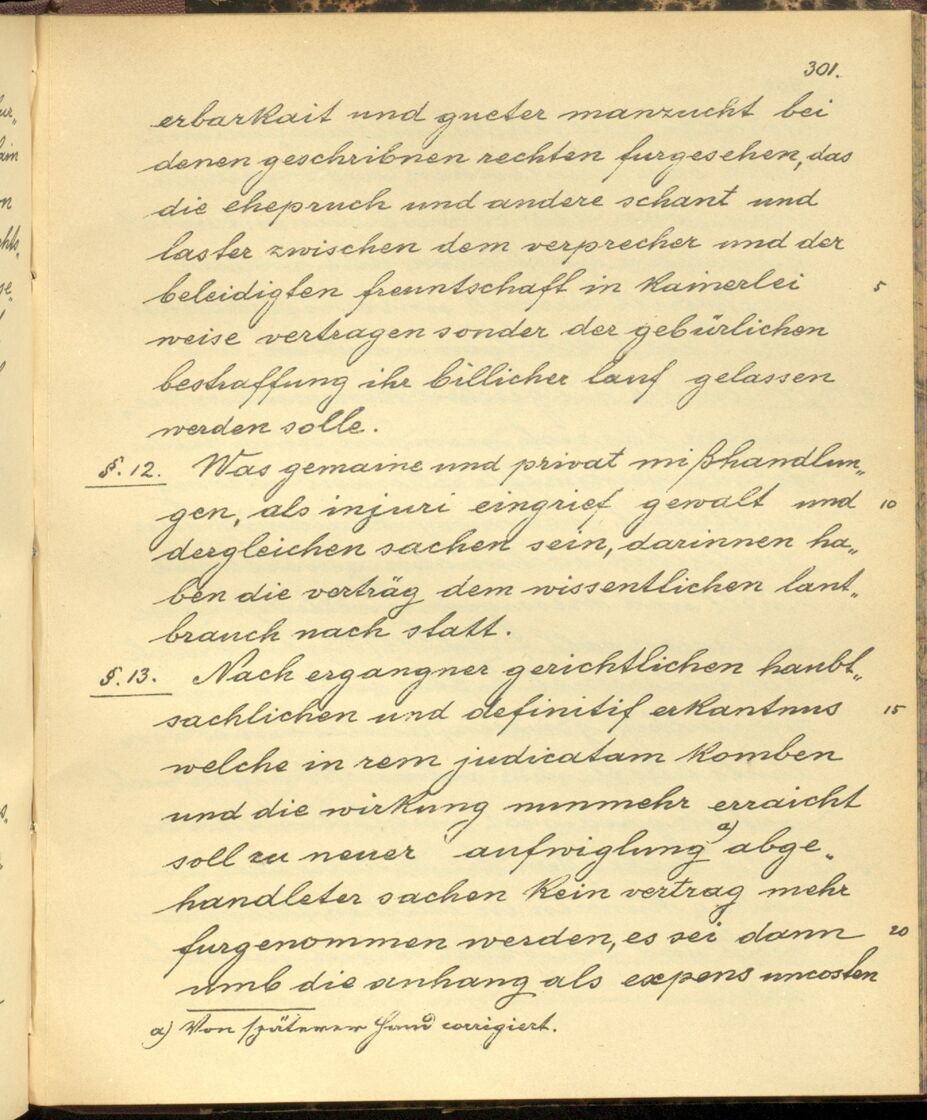 301.
erbarkait und gueter manzucht bei
denen geschribnen rechten furgesehen, das
die ehepruch und andere schant und
laster zwischen dem verprecher und der
beleidigten freuntschaft in kainerlei 5
weise vertragen sonder der gebürlichen
bestraffung ihr billicher lauf gelassen
werden solle.
§. 12. Was gemaine und privat mißhandlun„
gen, als injuri eingrief gewalt und 10
dergleichen sachen sein, darinnen ha„
ben die verträg dem wissentlichen lant„
brauch nach statt.
§. 13. Nach ergangner gerichtlichen haubt„
sachlichen und definitif erkantnus 15
welche in rem judicatam komben
und die wirkung nunmehr erraicht
soll zu neuer aufwiglung a) abge„
handleter sachen kein vertrag mehr
furgenommen werden, es sei dann 20
umb die anhang als expens uncosten
a) Von späterer Hand corrigiert.